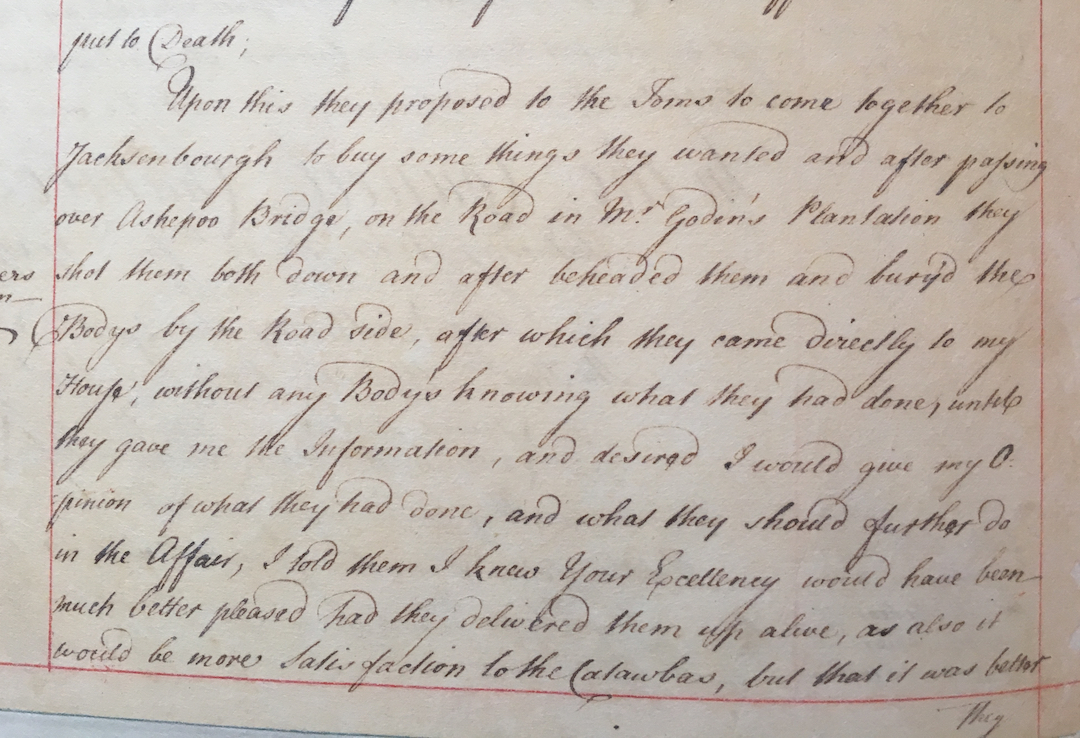 put to Death;
Upon this they proposed to the Toms to come together to
Jacksenbourgh to buy some things they wanted and after passing
over Ashepoo Bridge, on the Road in Mr. Godin's Plantation they
shot them both down and after beheaded them and bury'd the
Bodys by the Road side, after which they came directly to my
House, without any Body's knowing what they had done, until
they gave me the Information, and desired I would give my O-
pinion of what they had done, and what they should further do
in the Affair, I told them I knew Your Excellency would have been
much better pleased had they delivered them up alive, as also it
would be more Satisfaction to the Catawbas, but that it was better
They